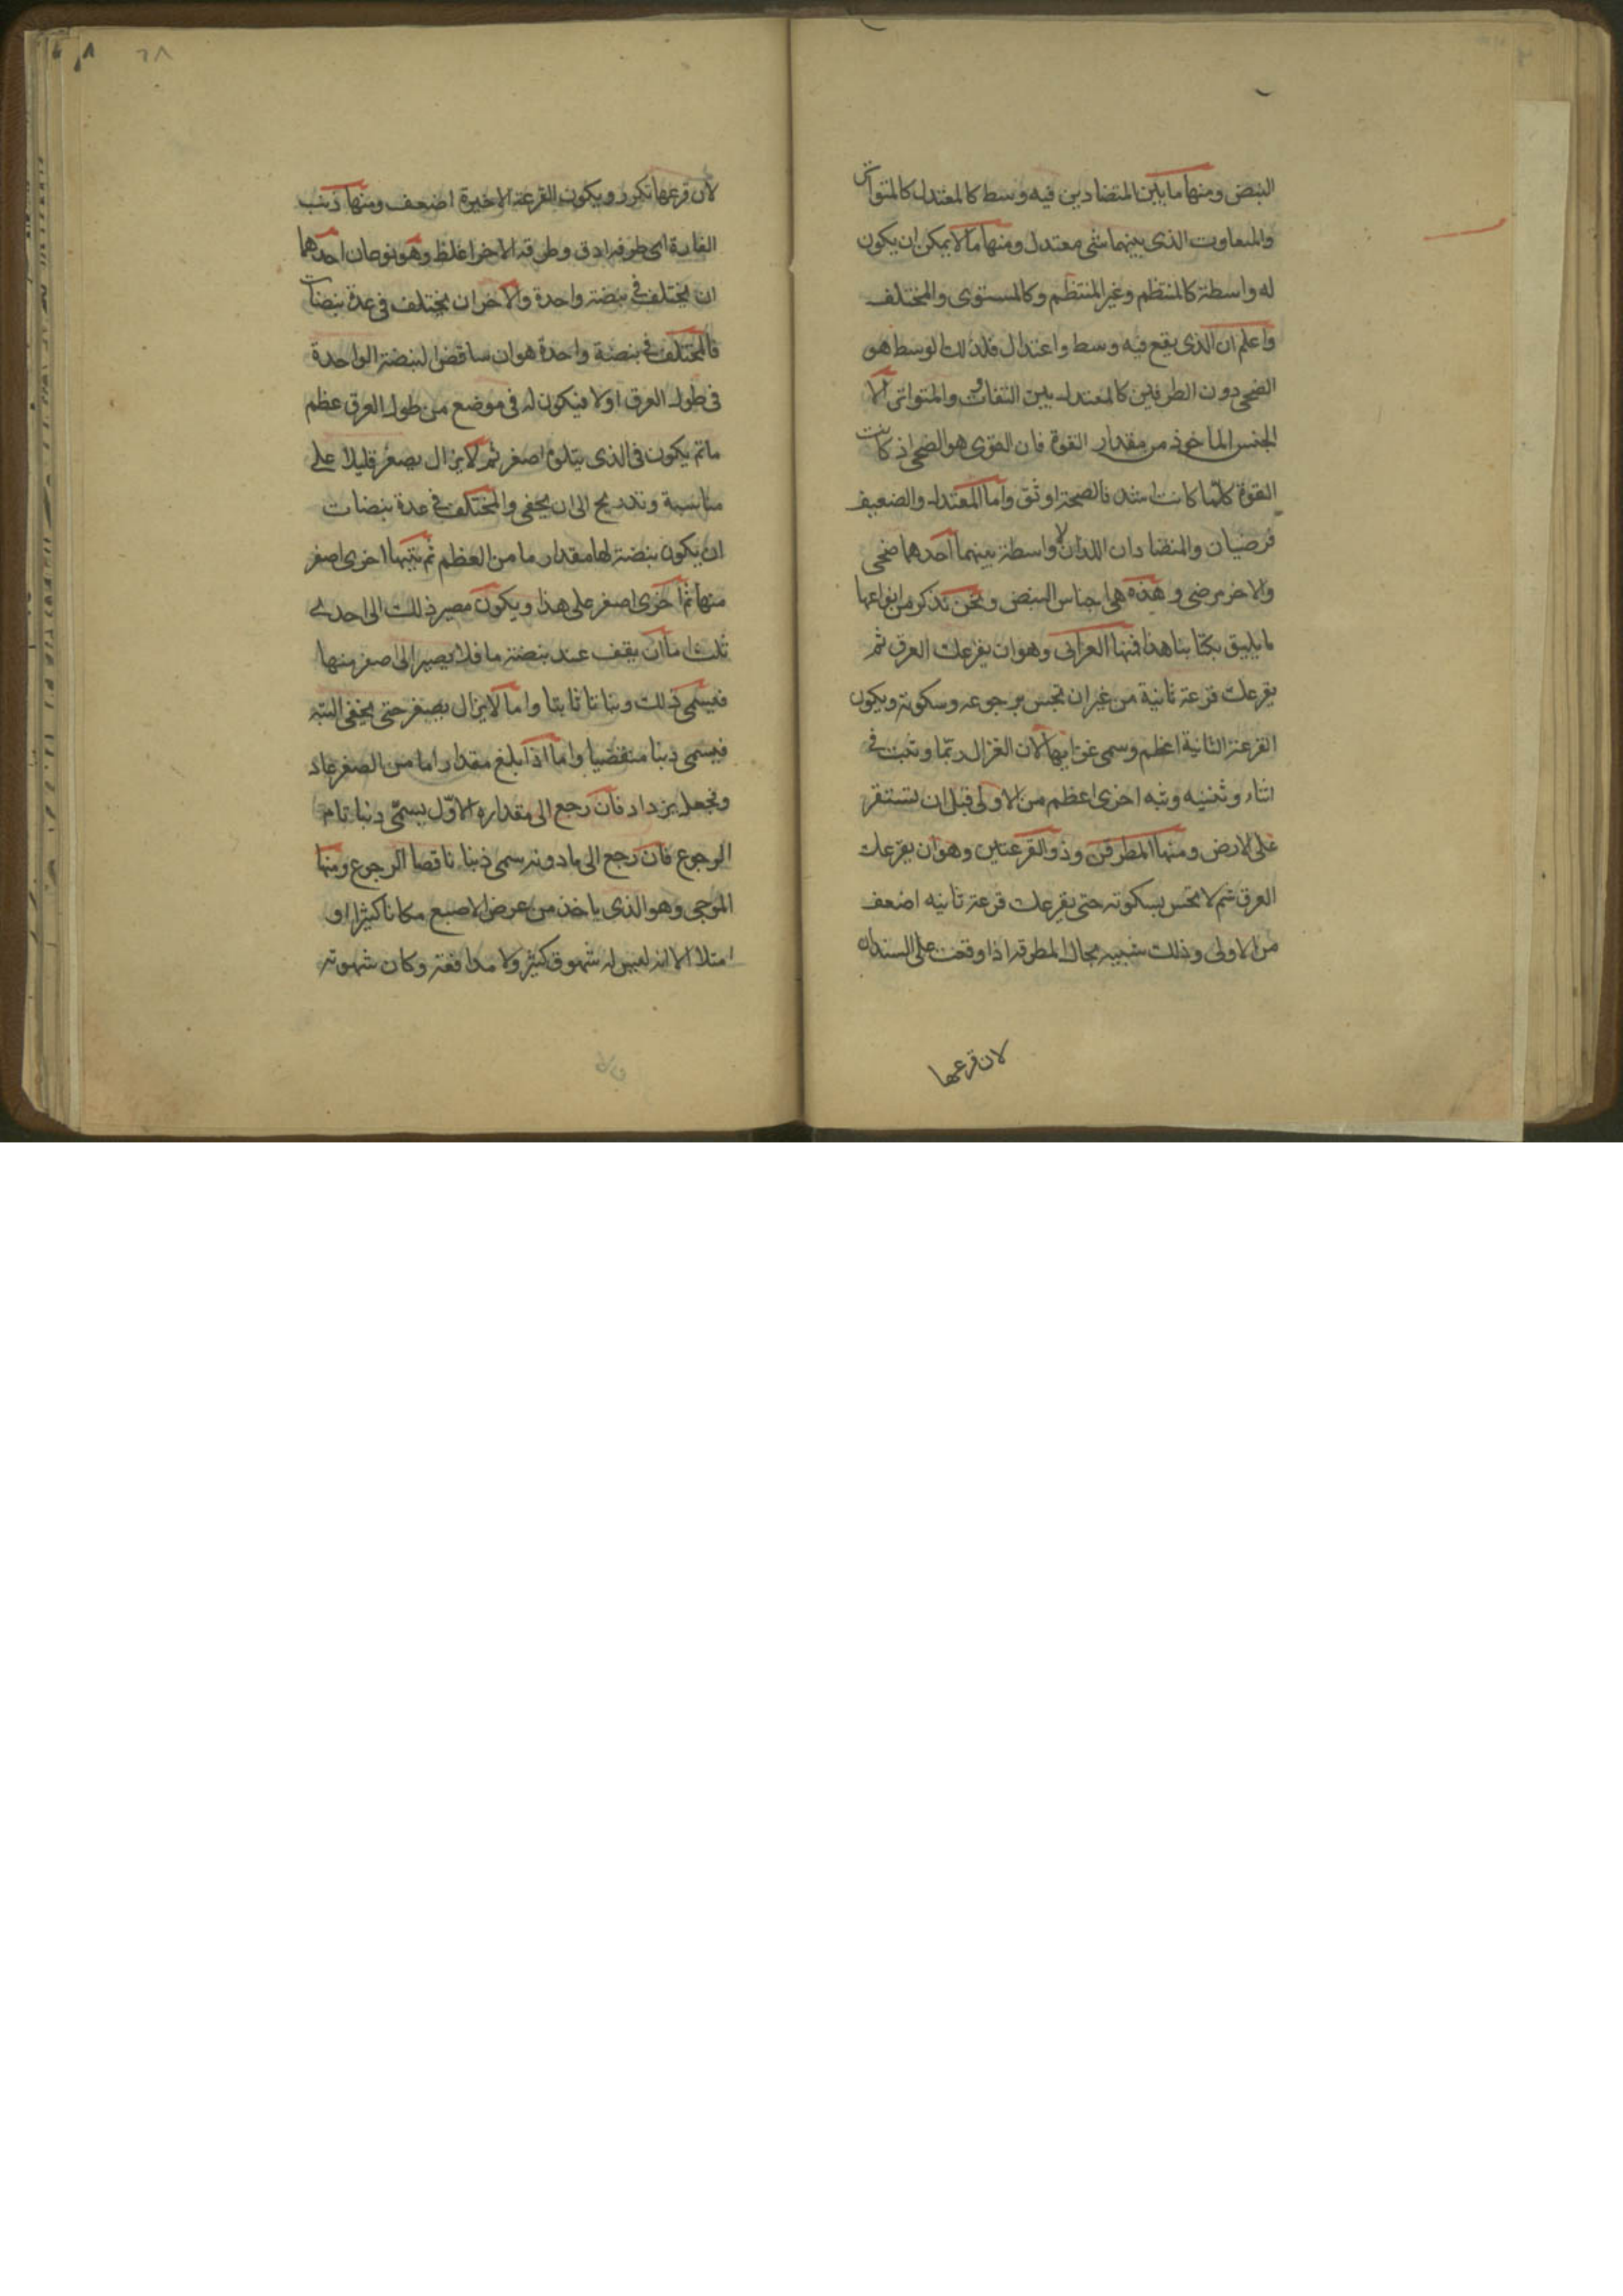 النبض ومنها ما بين المتضادين فيه وسط كالمعتدل كالمتواتر
والمتفاوت الذى بينهما شى معتدل ومنها ما لا يمكن ان يكون
له واسطة كالمنتظم وغير المنتظم وكالمستوى والمختلف
واعلم ان الذى يقع فيه وسط واعتدال فلذلك الوسط هو
الصحى دون الطرفين كالمعتدل بين التفاوت والمتواتر الا
الجنس الماخوذ من مقدار القوة فان القوى هو الصحى اذ كانت
القوة كلما كانت اشد فالصحة اوثق واما المعتدل والضعيف
فرضيان والمتضادان اللذان لا واسطة بينهما احدهما صحى
والاخر مرضى وهذه هى اجناس النبض ونحن نذكر من انواعها
ما يليق بكتابنا هذا فمنها الغزالى وهو ان يقرعك العرق ثم
يقرعك قرعة ثانية من غير ان تحس برجوعه وسكونه ويكون
القرعة الثانية اعظم وسمى غزاليها لان الغزال ربما وثب فى
اثناء وثبه اخرى اعظم من الاولى قبل ان يستقر
على الارض ومنها المطرقى وذو القرعتين وهو ان يقرعك
العرق ثم لا تحس بسكونه حتى يقرعك قرعة ثانيه اضعف
من الاولى وذلك شبيه بحال المطرقة اذا وقعت على السندان
لان قرعها
٦٨
لان قرعها تكرر ويكون القرعة الاخيرة اضعف ومنها ذنب
الفارة اى طرفه ادق وطرفه الاخر اغلظ وهو نوعان احدهما
ان يختلف فى نبضة واحدة والاخر ان يختلف فى عدة نبضات
فالمختلف فى نبضة واحدة هو ان النبضة الواحدة
فى طول العرق اولا فيكون له فى موضع من طول العرق عظم
ما ثم يكون فى الذى يتلوه اصغر ثم لا يزال يصغر قليلا على
مناسبة وتدريج الى ان يخفى والمختلف فى عدة نبضات
ان يكون نبضة لها مقدار ما من العظم ثم تتبها اخرى اصغر
منها ثم اخرى اصغر على هذا ويكون مصير ذلك الى احدى
ثلث اما ان يقف عند نبضة ما فلا يصير الى اصغر منها
فيسمى ذلك ثابتا واما لا يزال يصغر حتى يخفى البتة
فيسمى ذنبا منقضيا واما اذا بلغ مقدارا ما من الصغر عاد
وجعل يزداد فان رجع الى مقداره الاول يسمى ذنبا تام
الرجوع فان رجع الى ما دونه سمى ذنبا ناقصا الرجوع ومنها
الموجى وهو الذى ياخذ من عرض الاصبع مكانا كثيرا او
امتلا الا انه ليس له شهوق كثير ولا مدافعة وكان شهوته